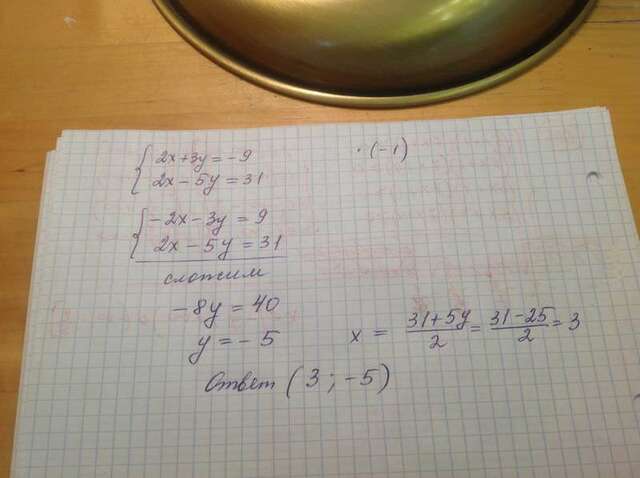 2x+3y=-9 ·(-1)
2x-5y=31
-2x-3y=9
2x-5y=31
сложим
-8y=40
y=-5 x = 31+5y/2 = 31-25/2 = 3
Ответ (3; -5)